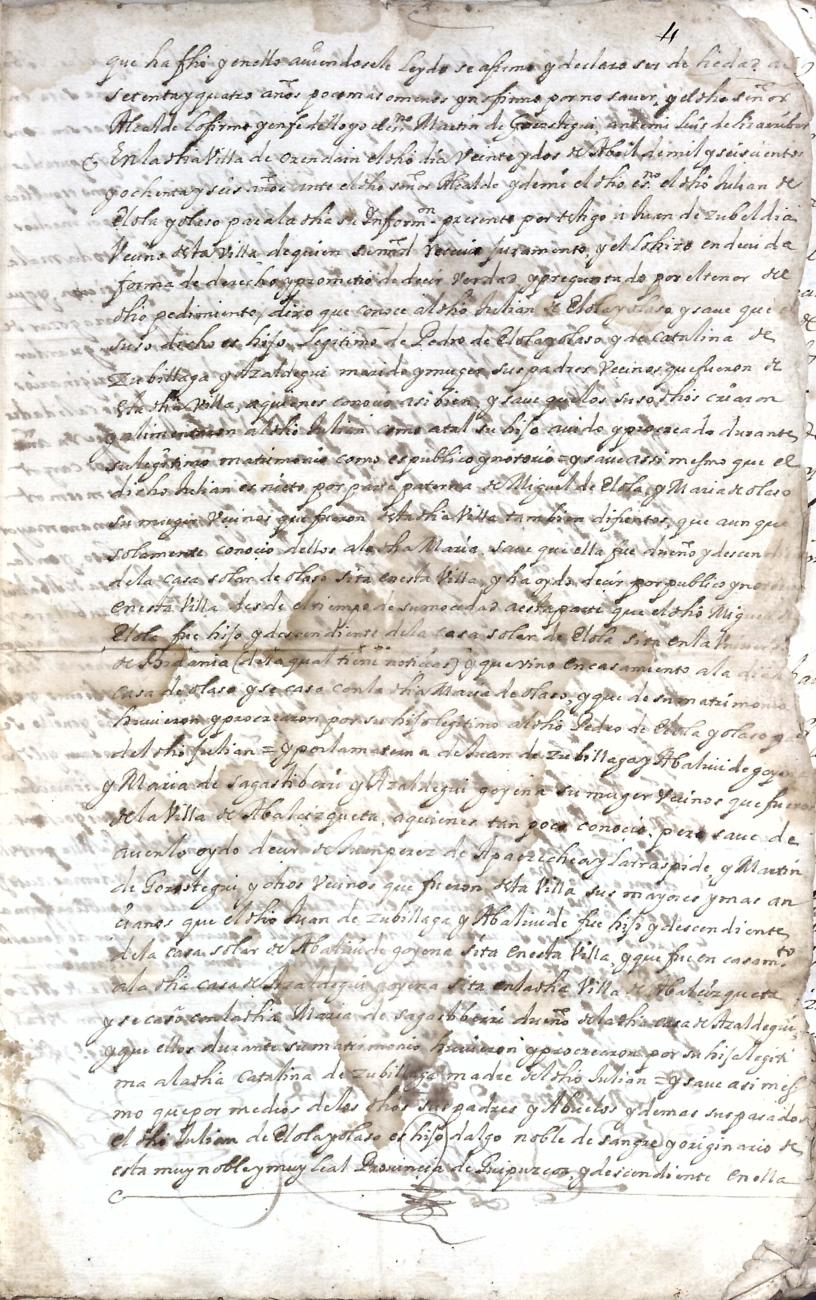 4
que ha fho y en ello aviendosele leydo se afirmo y declaro ser de hedad de
setenta y quatro años poco mas o menos y no firmo por no saver, y el dho señor
Alcalde lo firmo y en fe dello yo el esno Martin de Gorostegui, ante mi Luis de
En la dha Villa de Orendain el dho dia Veinte y dos de Abril de mil y seiscientos
y ochenta y seis años ante el dho señor Alcalde y de mi el dho esno el dho Julian de
Elola y olaso para la dha su Informon presento por testigo a Juan de Zubeldia
Vecino desta Villa de quien su mrd recivio juramento, y el lo hizo en devida
forma de derecho y prometio de decir verdad, y preguntado por el tenor del
dho pedimiento, dixo que conoce al dho Julian de Elola y olaso y save que el
suso dicho es hijo legitimo de Pedro de Elola y olaso y de Catalina de
Zubillaga y Azaldegui marido y muger sus padres Vecinos que fueron de
esta dha Villa, a quienes conocio asi bien, y save que los suso dhos criaron
y alimentaron al dho Julian como a tal su hijo avido y procreado durante
su legitimo matrimonio como es publico y notorio = y save assi mesmo que el
dicho Julian es nieto por parte paterna de Miguel de Elola, y Maria de olaso
su muger Vecinos que fueron desta dha Villa tambien difuntos, que aunque
solamente conocio dellos a la dha Maria, save que ella fue dueño y descen
de la casa solar de olaso sita en esta Villa, y ha oydo decir por publico y notorio
en esta Villa desde el tiempo de su mocedad a esta parte que el dho Miguel de
Elola fue hijo y descendiente de la casa solar de Elola sita en la
de Bidania (de la qual tiene noticias) y que vino en casamiento a la dicha
casa de olaso y se caso con la dha Maria de olaso, y que de su matrimonio
huvieron y procrearon por su hijo legitimo al dho Pedro de Elola y olaso p
del dho Julian = y por la materna de Juan de Zubillaga y Abaliuide goyena
y Maria de sagastiberri y Azaldegui goyena su muger Vecinos que fueron
de la Villa de Abalcizqueta, a quienes tan poco conocio, pero save de
averlo oydo decir de Juan perez de Apaezechea y Larraspide, y Martin
de Gorostegui, y otros Vecinos que fueron desta Villa sus mayores y mas an
cianos que el dho Juan de Zubillaga y Abaliuide fue hijo y descendiente
de la casa solar de Abaliuide goyena sita en esta Villa, y que fue en casamto
a la dha casa de Azaldegui goyena sita en la dha Villa de Abalcizqueta
y se caso con la dha Maria de sagastiberri dueño de la dha casa de Azaldegui,
y que ellos durante su matrimonio huvieron y procrearon por su hija legiti
ma a la dha Catalina de Zubillaga madre del dho Julian = y save asi mes
mo que por medios de los dhos sus padres y Abuelos y demas sus pasados
el dho Julian de Elola y olaso es hijo dalgo noble de sangre y originario de
esta muy noble y muy leal Provincia de Guipuzcoa, y descendiente en ella